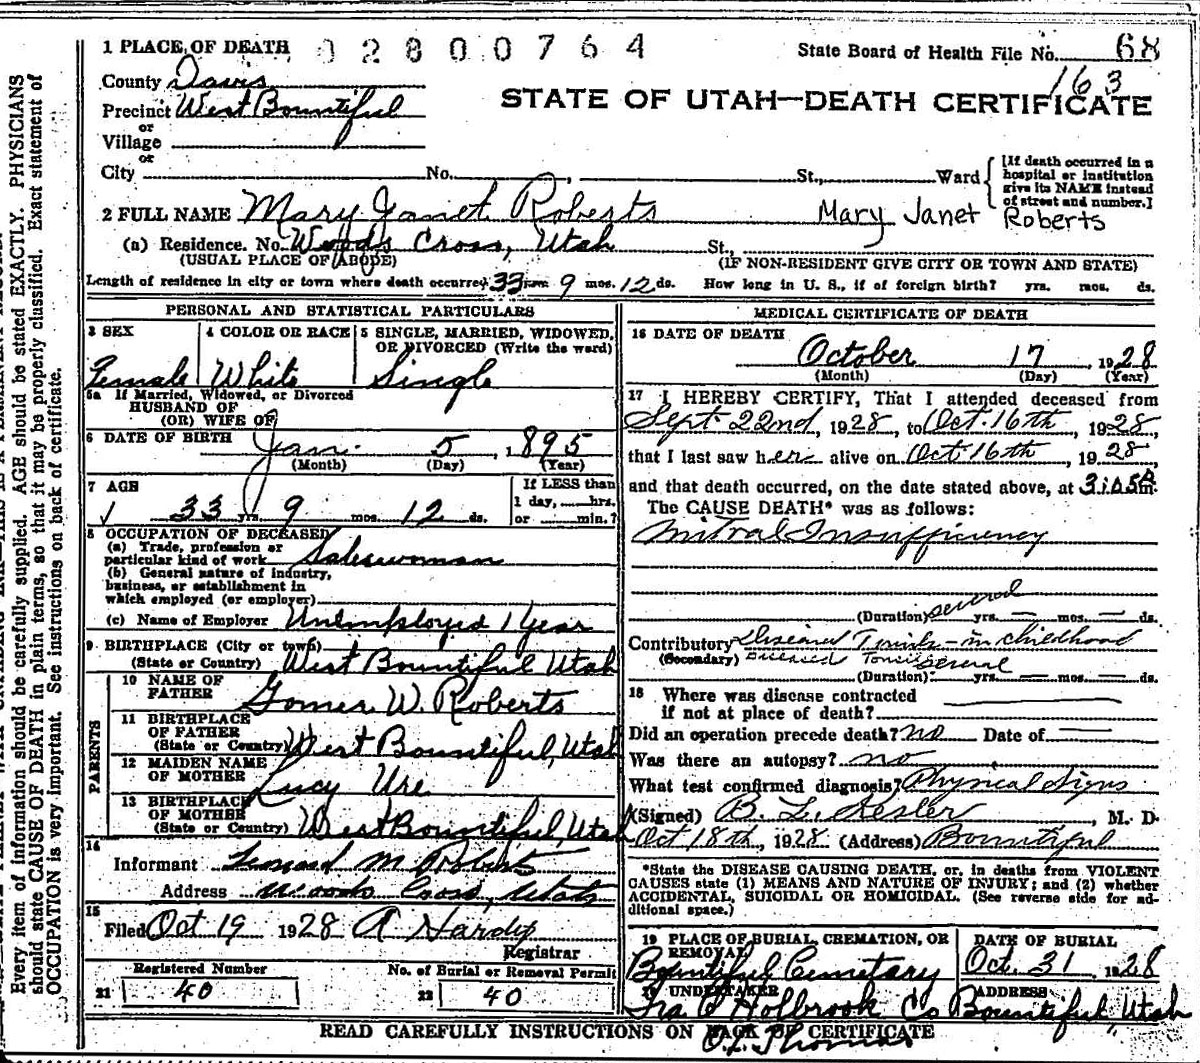 1 PLACE OF DEATH 02800764 State Board of Health File No. 68
163
County Davis
Precinct West Bountiful
STATE OF UTAH—DEATH CERTIFICATE
or
Village
or
City No. , St., Ward
[If death occurred in a hospital or institution give its NAME instead of street and number.]
2 FULL NAME Mary Janet Roberts Mary Janet Roberts
(a) Residence. No. Woods Cross, Utah St.,
(USUAL PLACE OF ABODE) (IF NON-RESIDENT GIVE CITY OR TOWN AND STATE)
Length of residence in city or town where death occurred 33 yrs 9 mos. 12 ds. How long in U. S., if of foreign birth? yrs. mos. ds.
PERSONAL AND STATISTICAL PARTICULARS
3 SEX 4 COLOR OR RACE 5 SINGLE, MARRIED, WIDOWED, OR DIVORCED (Write the word)
Female White Single
5a If Married, Widowed, or Divorced
HUSBAND OF
(OR) WIFE OF
6 DATE OF BIRTH Jan. 5, 1895
(Month) (Day) (Year)
7 AGE
33 yrs. 9 mos. 12 ds.
If LESS than
1 day, hrs.
or min.?
8 OCCUPATION OF DECEASED
(a) Trade, profession or
particular kind of work Saleswoman
(b) General nature of industry,
business, or establishment in
which employed (or employer)
(c) Name of Employer Unemployed 1 Year
9 BIRTHPLACE (City or town)
(State or Country) West Bountiful Utah
PARENTS
10 NAME OF
FATHER Gomer W. Roberts
11 BIRTHPLACE
OF FATHER
(State or Country) West Bountiful, Utah
12 MAIDEN NAME
OF MOTHER Lucy Ure
13 BIRTHPLACE
OF MOTHER
(State or Country) West Bountiful, Utah
14
Informant Leonard M Roberts
Address Woods Cross, Utah
15
Filed Oct 19 1928 A Hardy
Registrar
Registered Number No. of Burial or Removal Permit
21 40 22 40
MEDICAL CERTIFICATE OF DEATH
16 DATE OF DEATH
October 17 1928
(Month) (Day) (Year)
17 I HEREBY CERTIFY, That I attended deceased from
Sept. 22nd, 1928, to Oct. 16th, 1928,
that I last saw her alive on Oct. 16th, 1928,
and that death occurred, on the date stated above, at m.
The CAUSE DEATH* was as follows:
Mitral Insufficiency
(Duration) several yrs. — mos. — ds.
Contributory Diseased Tonsils – in childhood
(Secondary) Diseased Tonsils
(Duration) several yrs. — mos. — ds.
18 Where was disease contracted
if not at place of death?
Did an operation precede death? no Date of —
Was there an autopsy? no
What test confirmed diagnosis? Physical Signs
(Signed) B. L. Kesler, M. D.
Oct 18th, 1928 (Address) Bountiful
*State the DISEASE CAUSING DEATH, or, in deaths from VIOLENT
CAUSES state (1) MEANS AND NATURE OF INJURY; and (2) whether
ACCIDENTAL, SUICIDAL OR HOMICIDAL. (See reverse side for ad-
ditional space.)
19 PLACE OF BURIAL, CREMATION, OR
REMOVAL DATE OF BURIAL
Bountiful Cemetary Oct. 31 1928
20 UNDERTAKER ADDRESS
Holbrook Co Bountiful, Utah
READ CAREFULLY INSTRUCTIONS ON BACK OF CERTIFICATE
O.L. Thomas
Every item of information should be carefully supplied. AGE should be stated EXACTLY. PHYSICIANS
should state CAUSE OF DEATH in plain terms, so that it may be properly classified. Exact statement of
OCCUPATION is very important. See instructions on back of certificate.